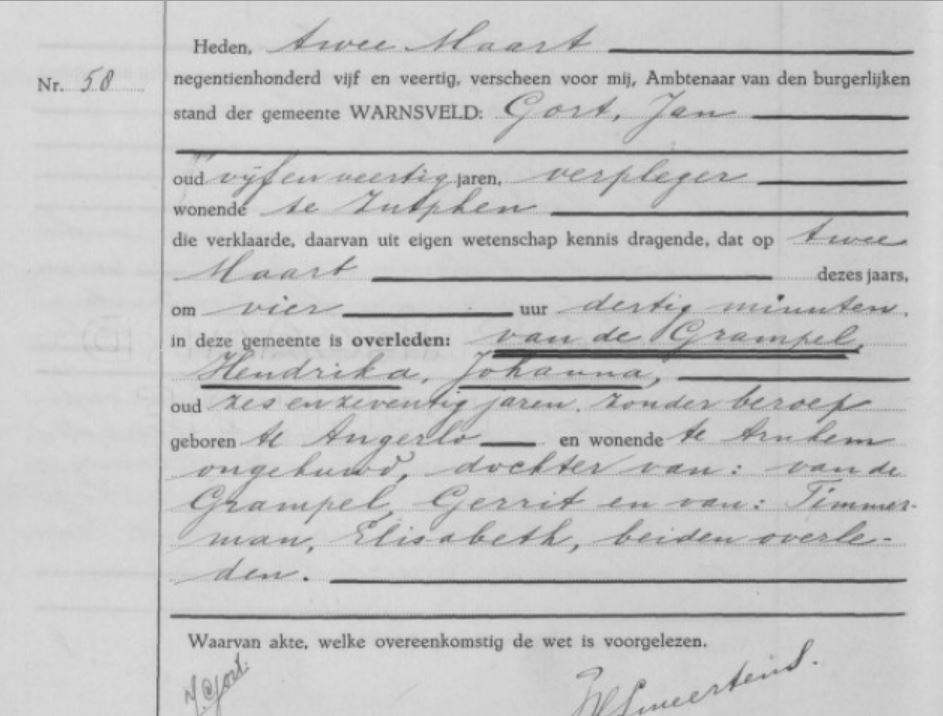 Heden, twee Maart
Nr. 58
negentienhonderd vijf en veertig, verscheen voor mij, Ambtenaar van den burgerlijken
stand der gemeente WARNSVELD: Gort, Jan
oud vijf en veertig jaren, verpleger
wonende te Zutphen
die verklaarde, daarvan uit eigen wetenschap kennis dragende, dat op twee
Maart dezes jaars,
om vier uur dertig minuten.
in deze gemeente is overleden: van de Grampel,
Hendrika, Johanna,
oud zes en zeventig jaren, zonder beroep
geboren te Angerlo en wonende te Arnhem
ongehuwd, dochter van: van de
Grampel, Gerrit en van: Timmer-
man, Elisabeth, beiden overle-
den.
Waarvan akte, welke overeenkomstig de wet is voorgelezen.
J. Gort.